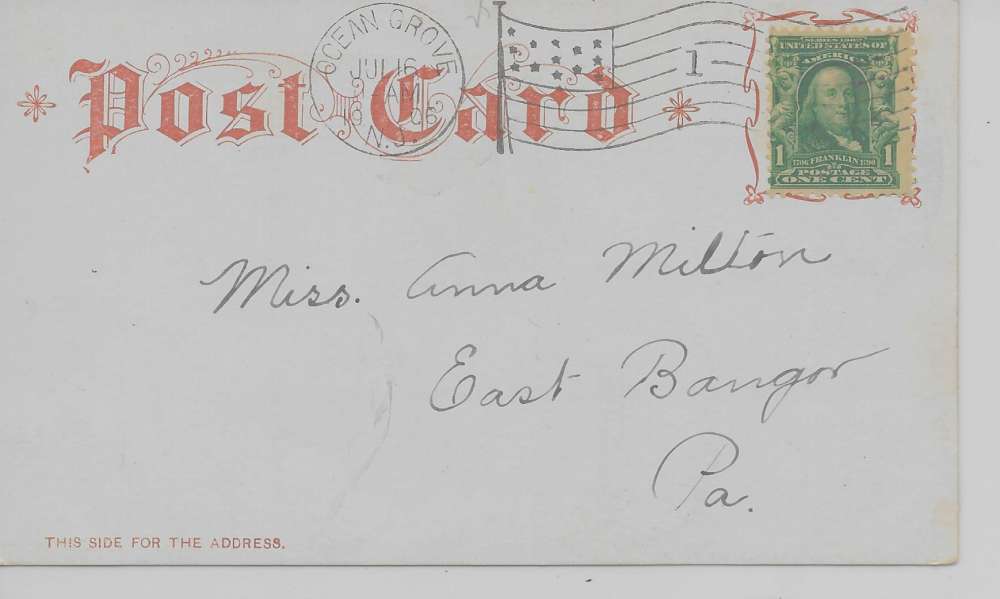 Post Card
OCEAN GROVE
JUL 16
AM
N.J.
1
SERIES 1902
UNITED STATES OF
AMERICA
1 1706 FRANKLIN 1790 1
POSTAGE
ONE CENT
Miss. Anna Milton
East Bangor
Pa.
THIS SIDE FOR THE ADDRESS.